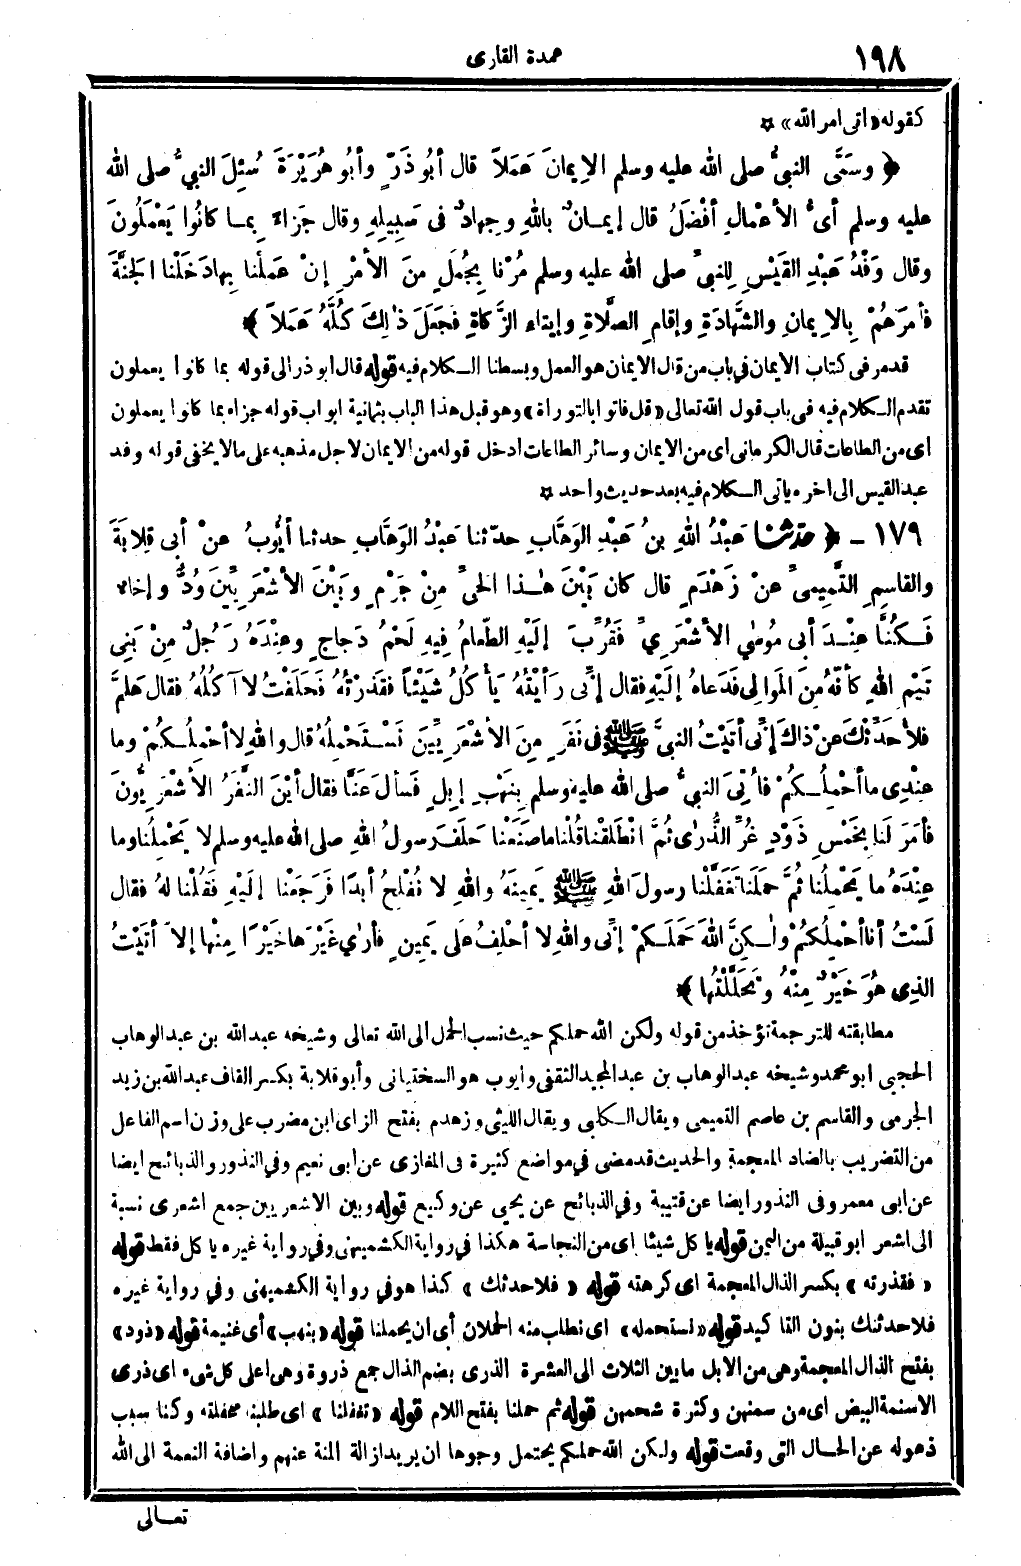 ١٩٨
عمدة القارى
كقوله «اتى امر الله» ۞
﴿ وسَمَّى النبيُّ صلى الله عليه وسلم الإيمانَ عَمَلاً قال أبُو ذَرٍّ وأبُو هُرَيْرَةَ سُئِلَ النبيُّ صلى الله
عليه وسلم أىُّ الأعْمالِ أفْضَلُ قال إيمانٌ باللهِ وجِهادٌ فى سَبِيلِهِ وقال جَزاءً بِما كانُوا يَعْمَلُونَ
وقال وَفْدُ عَبْدِ القَيْسِ لِلنبيِّ صلى الله عليه وسلم مُرْنا بِجُمَلٍ مِنَ الأمْرِ إنْ عَمِلْنا بِها دَخَلْنا الجَنَّةَ
فأمَرَهُمْ بِالإيمانِ والشَّهادَةِ وإقامِ الصَّلاةِ وإيتاءِ الزَّكاةِ فَجَعَلَ ذٰلِكَ كُلَّهُ عَمَلاً ﴾
قدمر فى كتاب الايمان في باب من قال الايمان هو العمل وبسطنا الكلام فيه قوله قال ابو ذر الى قوله بما كانوا يعملون
تقدم الكلام فيه فى باب قول الله تعالى «قل فاتوا بالتوراة» وهو قبل هذا الباب بثمانية ابواب قوله جزاء بما كانوا يعملون
اى من الطاعات قال الكرمانى اى من الايمان وسائر الطاعات ادخل قوله من الايمان لاجل مذهبه على مالا يخفى قوله وفد
عبد القيس الى اخره ياتى الكلام فيه بعد حديث واحد ۞
١٧٩ - ﴿ حدثنا عَبْدُ اللهِ بنُ عَبْدِ الوَهَّابِ حدّثنا عَبْدُ الوَهَّابِ حدثنا أيُّوبُ عنْ أبى قِلابَةَ
والقاسِمِ التَّمِيمىِّ عنْ زَهْدَمٍ قال كان بَيْنَ هٰذا الحَىِّ مِنْ جَرْمٍ وبَيْنَ الأشْعَرِيِّينَ وُدٌّ وإخاءٌ
فَكُنَّا عِنْدَ أبى مُوسٰى الأشْعَرِيِّ فَقُرِّبَ إلَيْهِ الطَّعامُ فِيهِ لَحْمُ دَجاجٍ وعِنْدَهُ رَجُلٌ مِنْ بَنِى
تَيْمِ اللهِ كأنَّهُ مِنَ المَوالِى فَدَعاهُ إلَيْهِ فقال إنِّى رَأيْتُهُ يَأْكُلُ شَيْئاً فقَذِرْتُهُ فَحَلَفْتُ لاَ آكُلُهُ فقال هَلُمَّ
فلأُحَدِّثْكَ عنْ ذاكَ إنِّى أتَيْتُ النبيَّ ﷺ فى نَفَرٍ مِنَ الأشْعَرِيِّينَ نَسْتَحْمِلُهُ قال واللهِ لا أحْمِلُكُمْ وما
عِنْدِى ما أحْمِلُكُمْ فأُتِىَ النبيُّ صلى الله عليه وسلم بِنَهْبِ إبِلٍ فَسَألَ عَنَّا فقال أيْنَ النَّفَرُ الأشْعَرِيُّونَ
فأمَرَ لَنا بِخَمْسِ ذَوْدٍ غُرِّ الذُّرٰى ثُمَّ انْطَلَقْنا قُلْنا ما صَنَعْنا حَلَفَ رسولُ اللهِ صلى الله عليه وسلم لا يَحْمِلُنا وما
عِنْدَهُ ما يَحْمِلُنا ثُمَّ حَمَلَنا تَغَفَّلْنا رسولَ اللهِ ﷺ يَمِينَهُ واللهِ لا نُفْلِحُ أبَدًا فَرَجَعْنا إلَيْهِ فَقُلْنا لهُ فقال
لَسْتُ أنا أحْمِلُكُمْ ولٰكِنَّ اللهَ حَمَلَكُمْ إنِّى واللهِ لا أحْلِفُ عَلَى يَمِينٍ فأرٰى غَيْرَها خَيْرًا مِنْها إلاَّ أتَيْتُ
الذِى هُوَ خَيْرٌ مِنْهُ وتَحَلَّلْتُها ﴾
مطابقته للترجمة تؤخذ من قوله ولكن الله حملكم حيث نسب الحمل الى الله تعالى وشيخه عبد الله بن عبد الوهاب
الحجبى ابو محمد وشيخه عبد الوهاب بن عبد المجيد الثقفى وايوب هو السختيانى وأبو قلابة بكسر القاف عبد الله بن زيد
الجرمى والقاسم بن عاصم التميمى ويقال الكلبى ويقال الليثى وزهدم بفتح الزاى ابن مضرب على وزن اسم الفاعل
من التضريب بالضاد المعجمة والحديث قد مضى في مواضع كثيرة فى المغازى عن ابى نعيم وفي النذور والذبائح ايضا
عن ابى معمر وفى النذور ايضا عن قتيبة وفي الذبائح عن يحيى عن وكيع قوله وبين الاشعريين جمع اشعرى نسبة
الى اشعر ابو قبيلة من اليمن قوله يا كل شيئا اى من النجاسة هكذا في رواية الكشميهنى وفي رواية غيره يا كل فقط قوله
«فقذرته» بكسر الذال المعجمة اى كرهته قوله «فلاحدثك» كذا هو في رواية الكشميهنى وفي رواية غيره
فلاحدثنك بنون التاكيد قوله «نستحمله» اى نطلب منه الحملان أى ان يحملنا قوله «بنهب» أى غنيمة قوله «ذود»
بفتح الذال المعجمة وهى من الابل ما بين الثلاث الى العشرة الذرى بضم الذال جمع ذروة وهى اعلى كل شىء اى ذرى
الاسنمة البيض أى من سمنهن وكثرة شحمهن قوله ثم حملنا بفتح اللام قوله «تغفلنا» اى طلبنا غفلته وكنا سبب
ذهوله عن الحال التى وقعت قوله ولكن الله حملكم يحتمل وجوها ان يريد ازالة المنة عنهم واضافة النعمة الى الله
تعالى